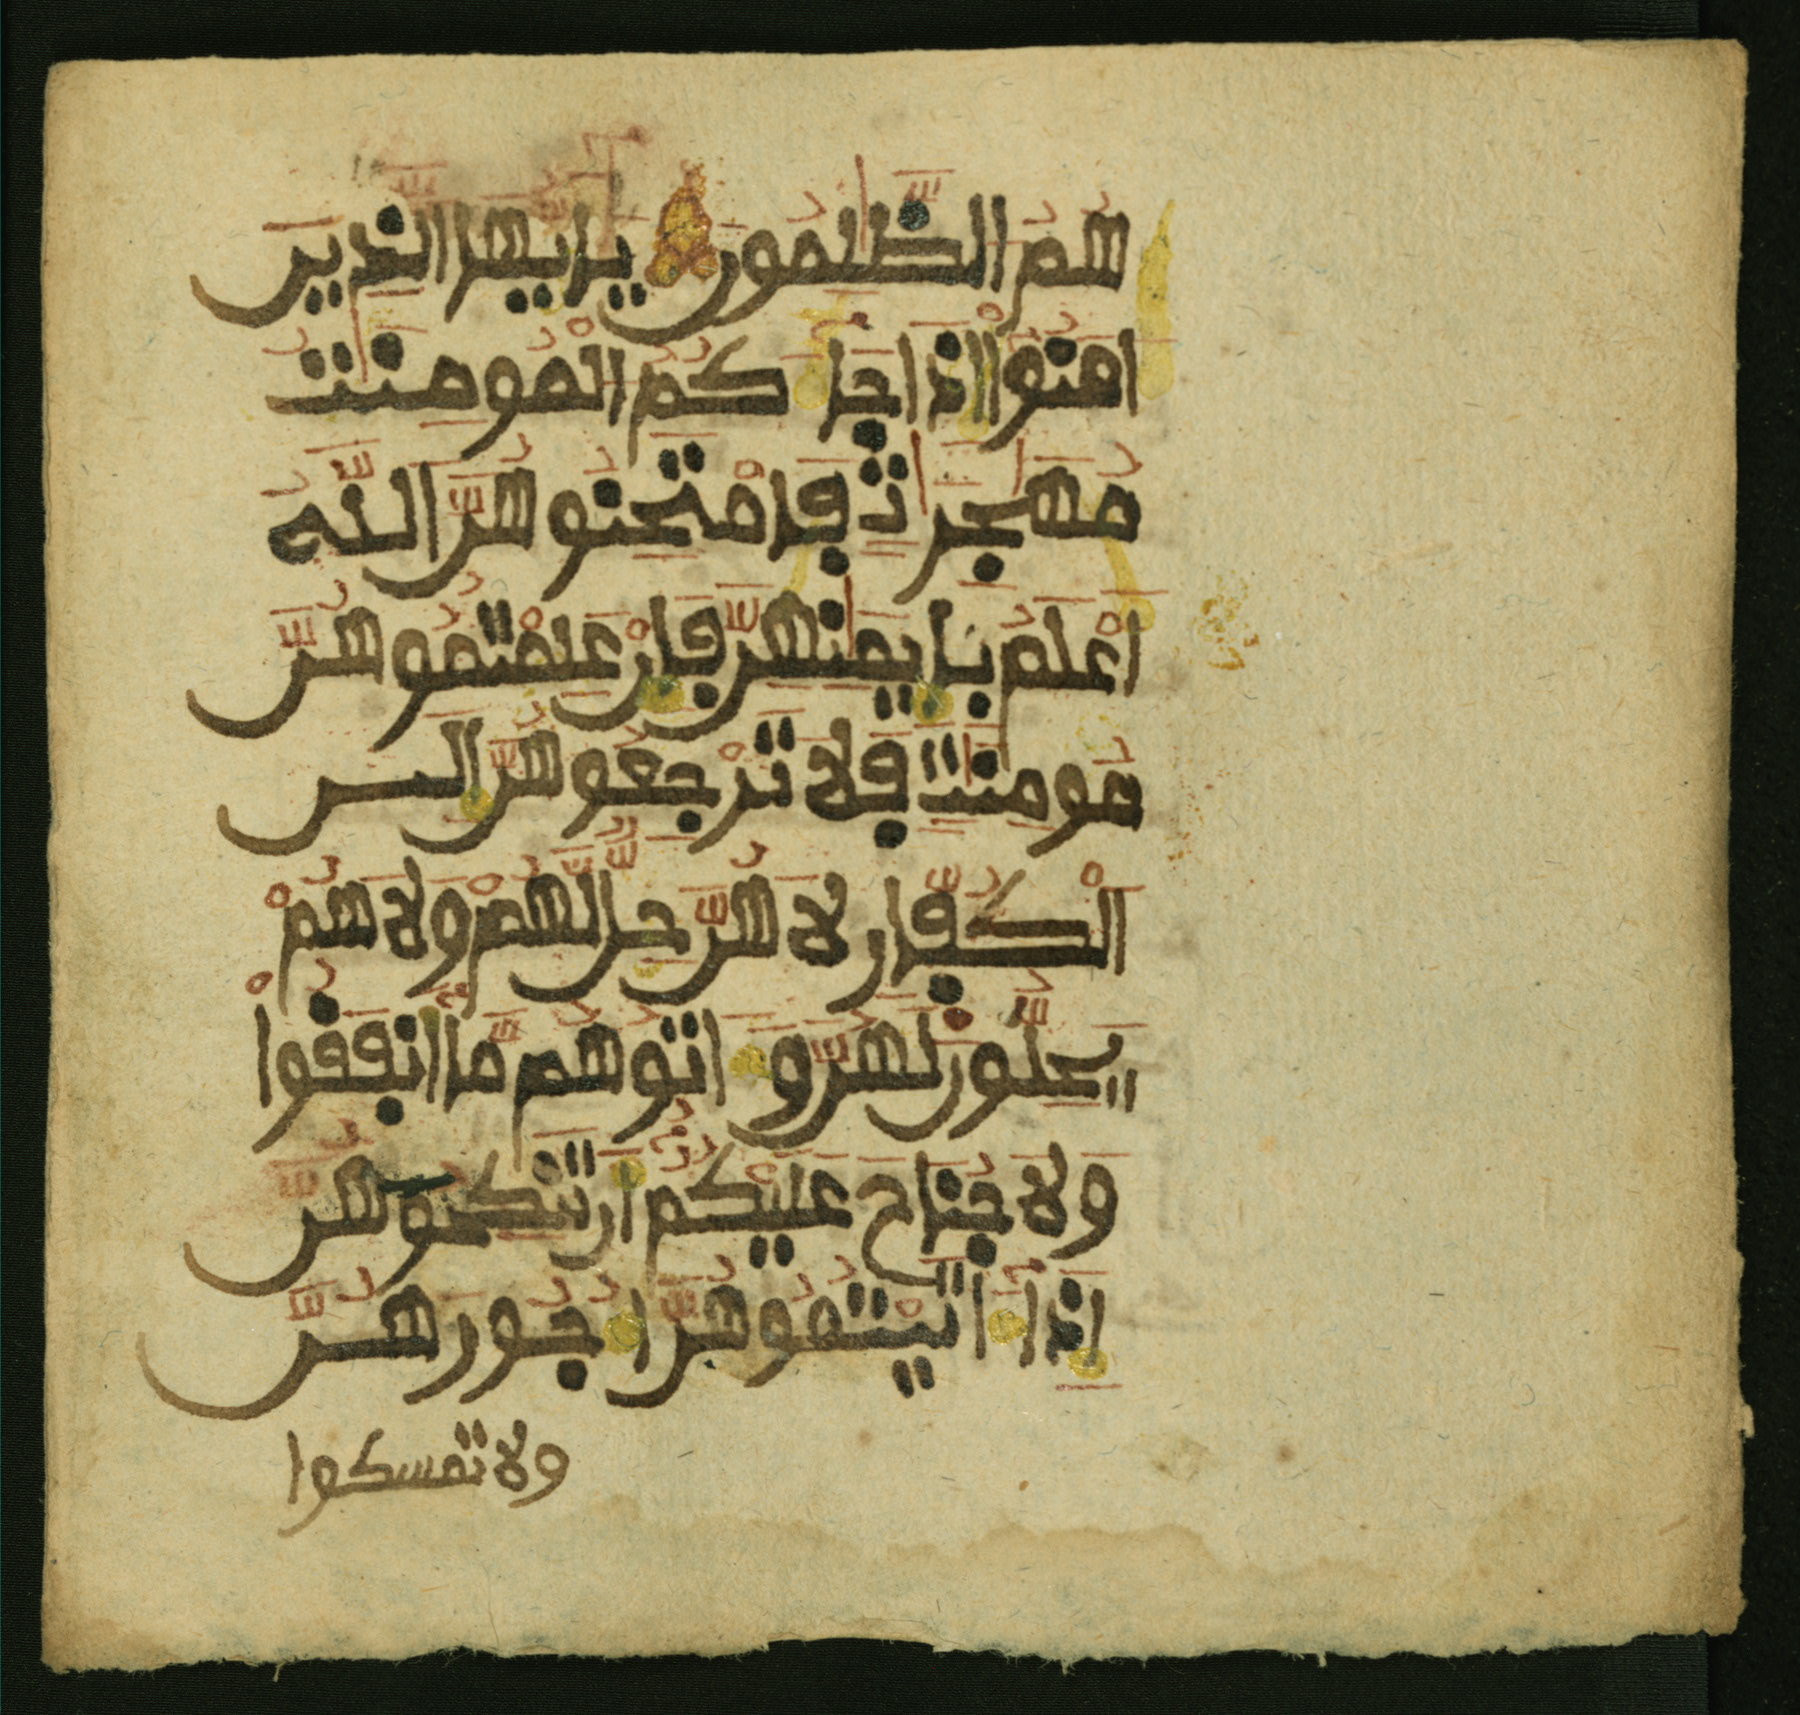 هُمُ الظَّلِمُونَ يَايُّهَا الذِينَ
ءَامَنُوا إِذَا جَاءَكُمُ الْمُومِنَتُ
مُهَجِرَتٍ فَامْتَحِنُوهُنَّ اللَّهُ
أَعْلَمُ بِإِيمَنِهِنَّ فَإِنْ عَلِمْتُمُوهُنَّ
مُومِنَتٍ فَلَا تَرْجِعُوهُنَّ إِلَى
الْكُفَّارِ لَا هُنَّ حِلٌّ لَّهُمْ وَلَا هُمْ
يَحِلُّونَ لَهُنَّ وَءَاتُوهُم مَّا أَنفَقُواْ
وَلَا جُنَاحَ عَلَيْكُمُ أَن تَنكِحُوهُنَّ
إِذَا ءَاتَيْتُمُوهُنَّ أُجُورَهُنَّ
ولا تمسكوا